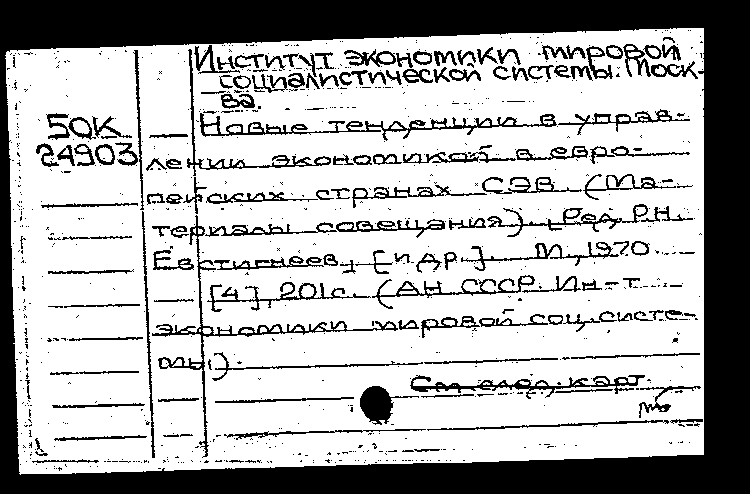 Институт экономики мировой
социалистической системы. Моск-
ва.
50К
24903
Новые тенденции в управ-
лении экономикой в евро-
пейских странах СЭВ. (Ма-
териалы совещания). [Ред. Р.Н.
Евстигнеев] [и др.]. М., 1970.
[4], 201с. (АН СССР. Ин-т
экономики мировой соц. систе-
мы).
См. след. карт.